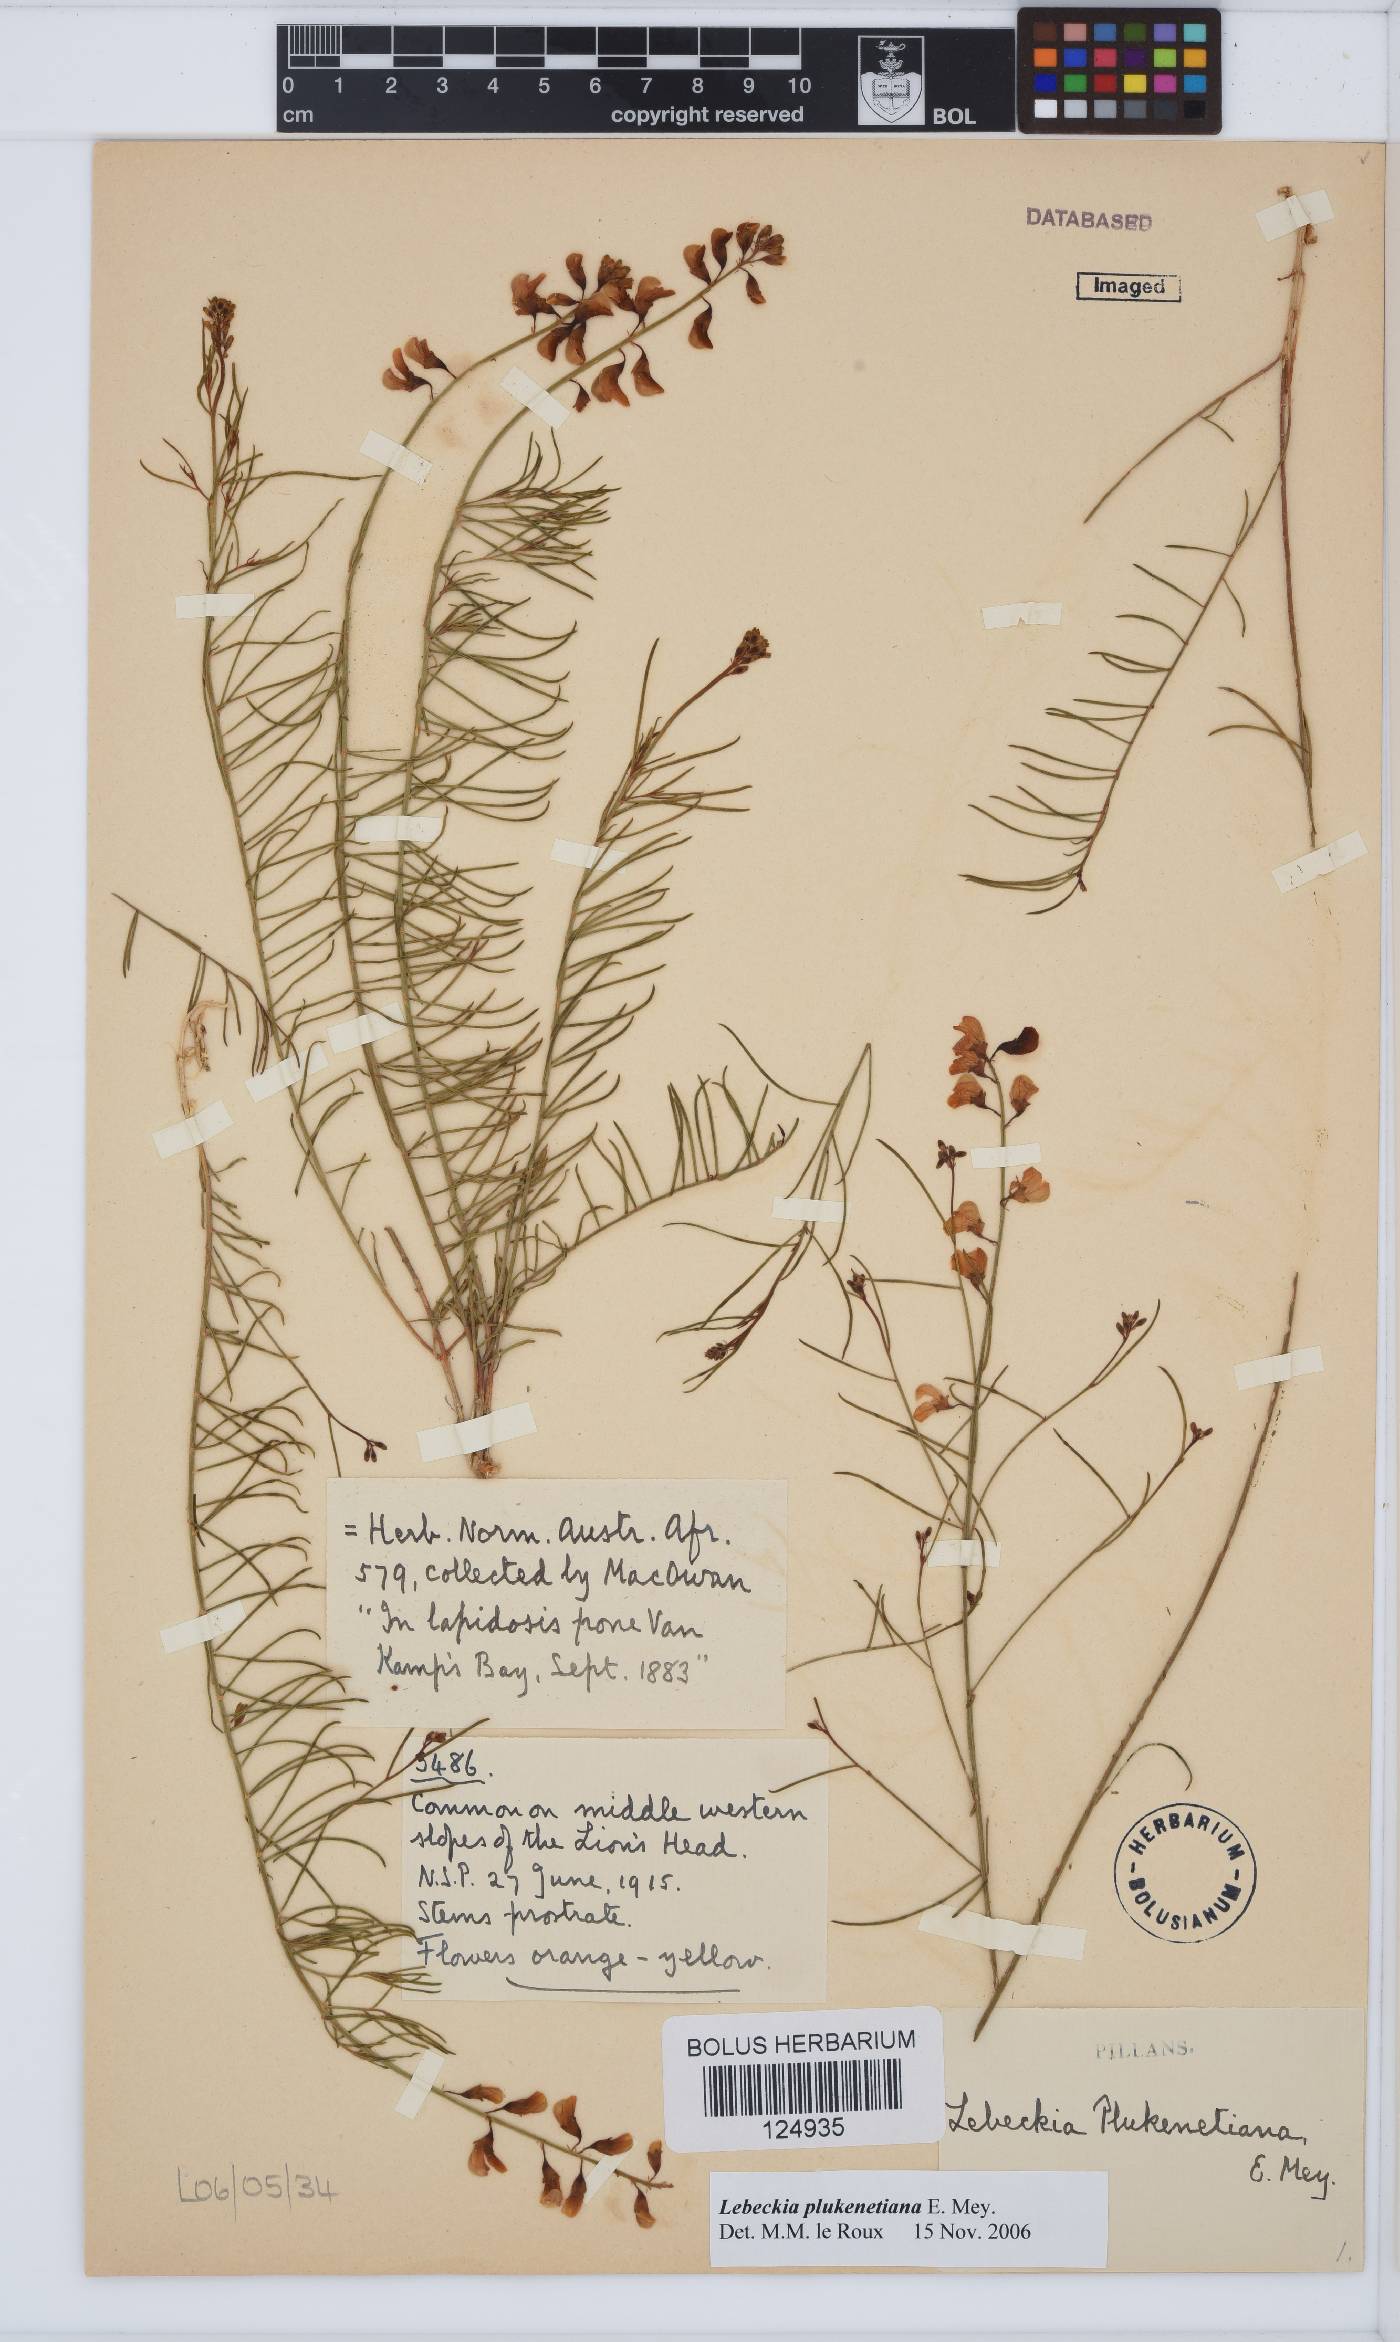 0 1 2 3 4 5 6 7 8 9 10
cm copyright reserved
BOL
DATABASED
Imaged
= Herb. Norm. Austr. Afr.
579, collected by MacOwan
"In lapidosis pone Van
Kamp's Bay, Sept. 1883"
3486.
Common on middle western
slopes of the Lion's Head.
N.S.P. 27 June, 1915.
Stems prostrate.
Flowers orange-yellow.
HERBARIUM
BOLUSIANUM
BOLUS HERBARIUM
124935
PILLANS.
Lebeckia Plukenetiana,
E. Mey.
Lebeckia plukenetiana E. Mey.
Det. M.M. le Roux 15 Nov. 2006
L06/05/34
1.